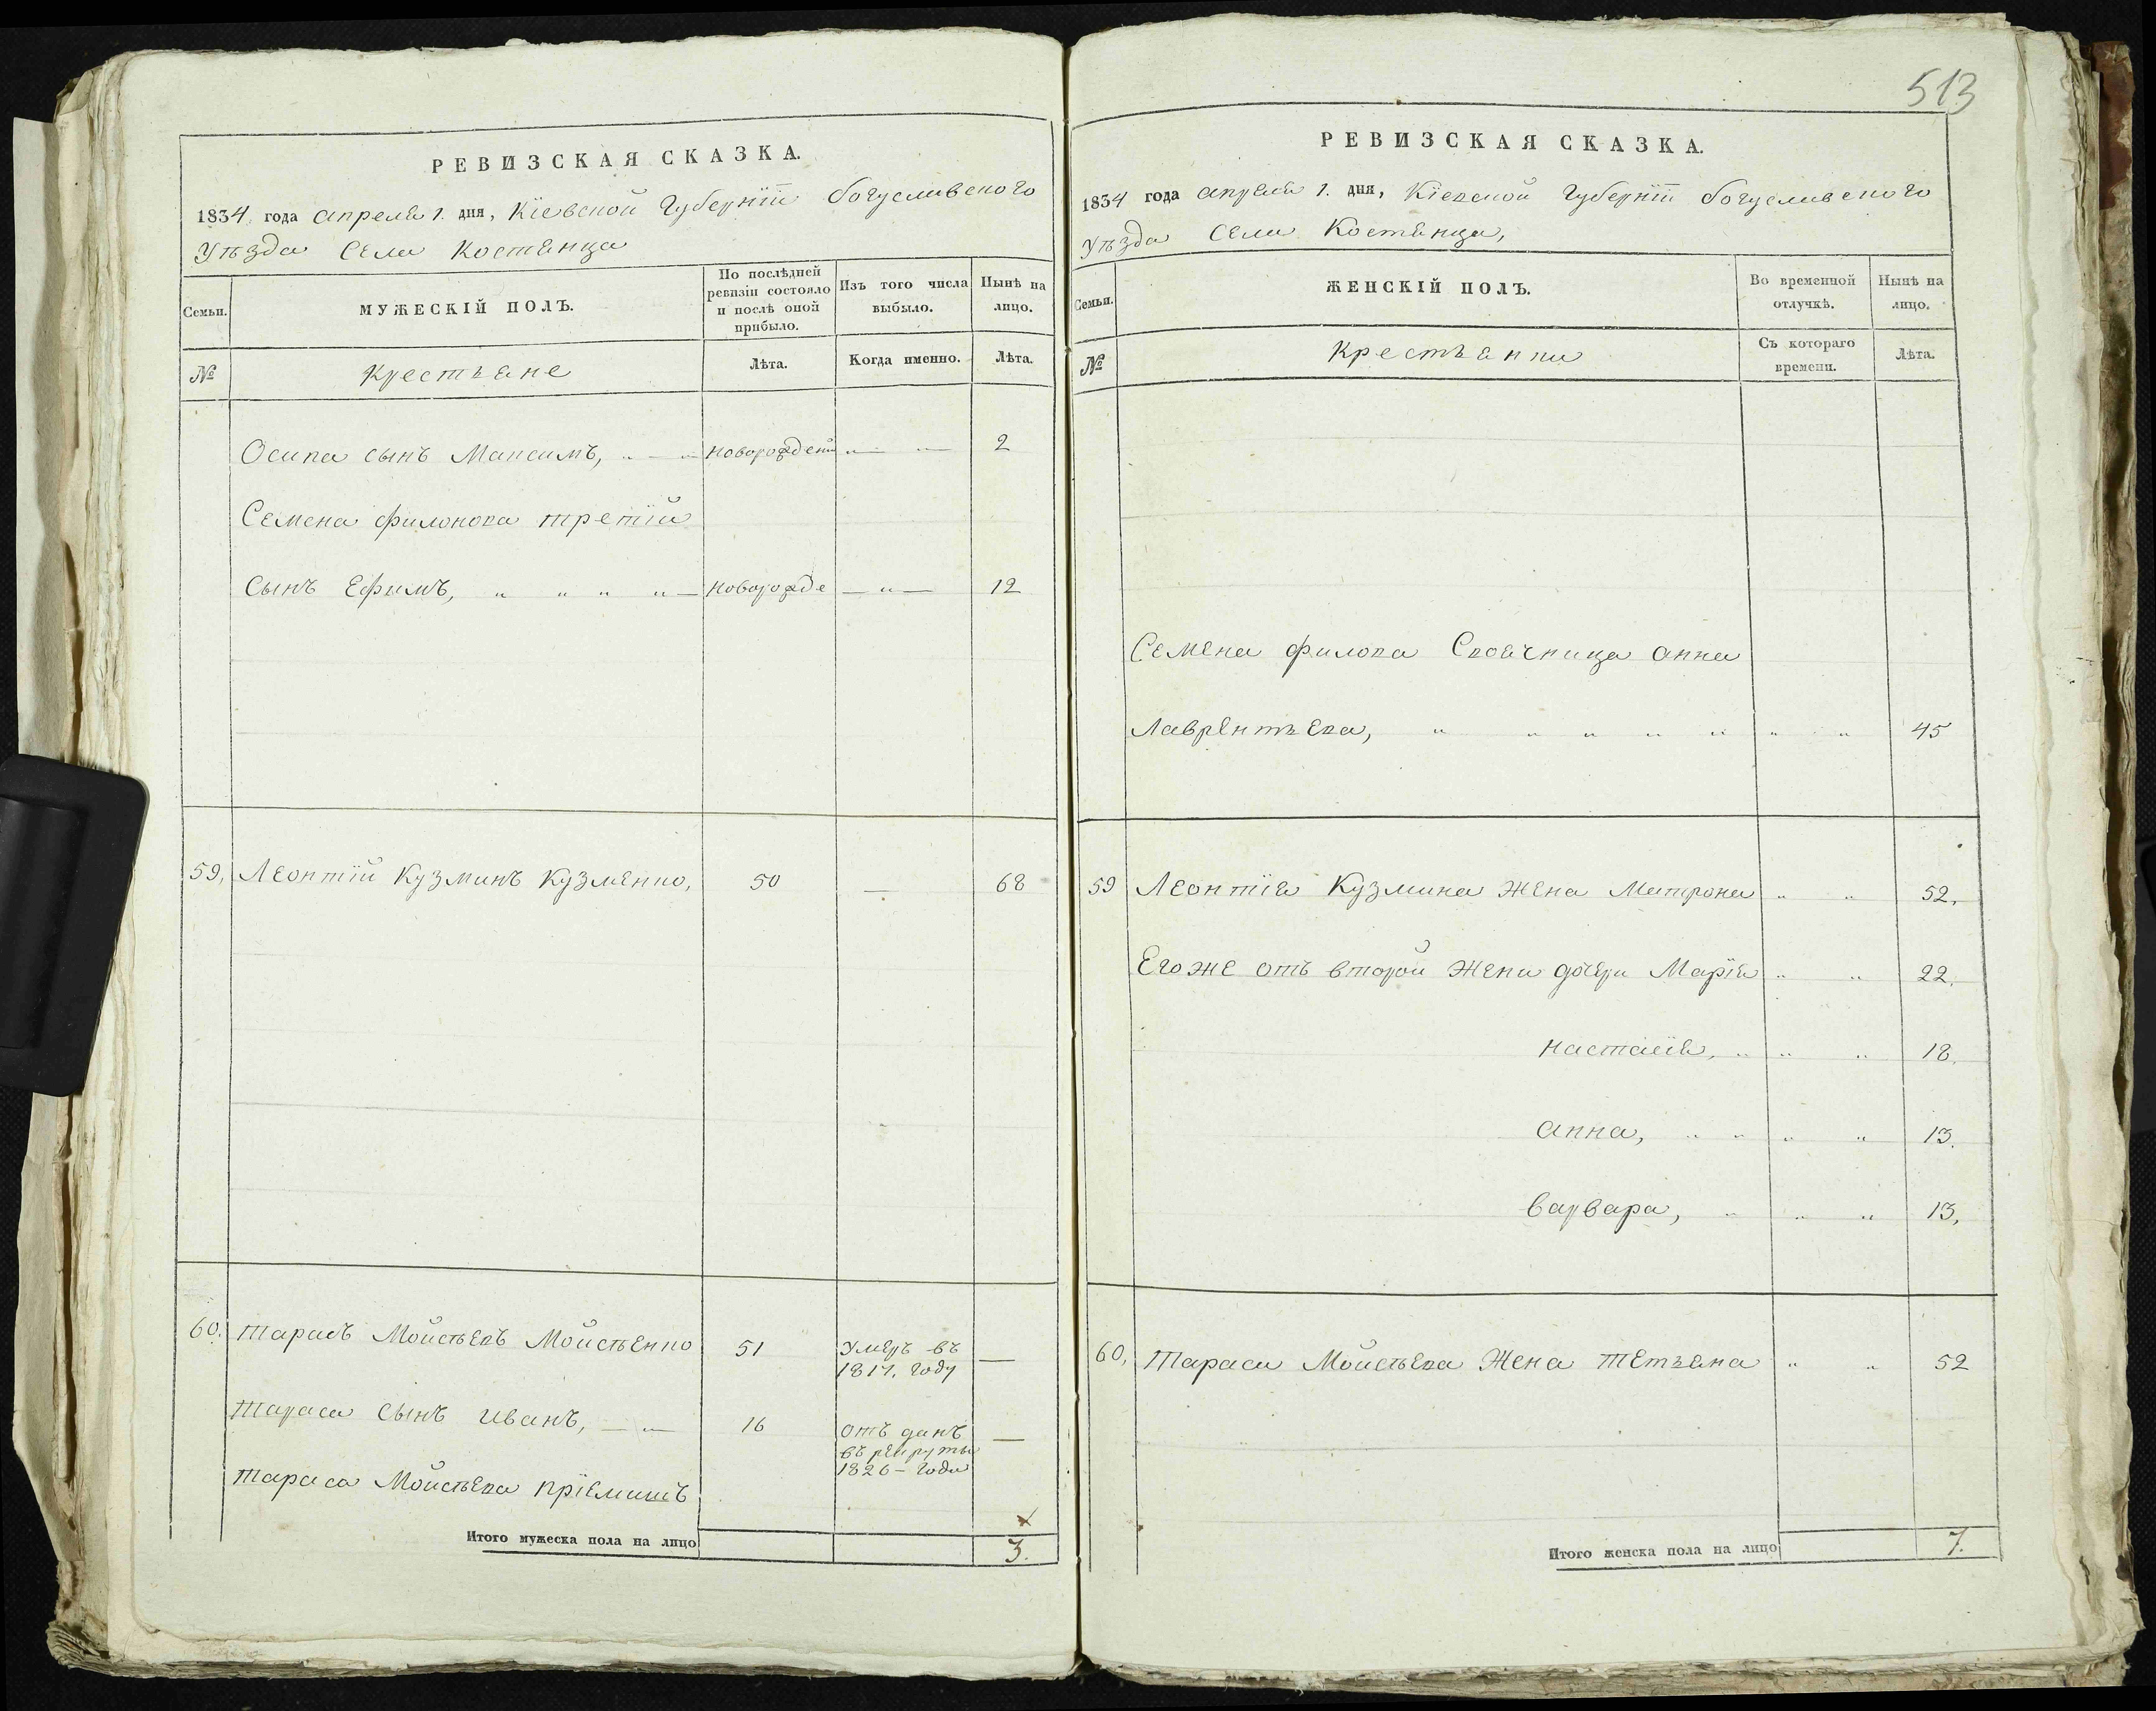 513
РЕВИЗСКАЯ СКАЗКА.
1834 года апреля 1. дня, Кіевской Губерніи богуславского
Уѣзда Села Костянца
Семьи. МУЖЕСКІЙ ПОЛЪ. По послѣдней ревизіи состояло и послѣ оной прибыло. Изъ того числа выбыло. Нынѣ на лицо.
№ Крестьяне Лѣта. Когда именно. Лѣта.
Осипа сынъ Максимъ, „ — „ новорожден „ — „ — 2
Семена филонова третій
Сынъ Ефимъ, „ „ „ „ — новорожде — „ — 12
59, Леонтій Кузминъ Кузменко, 50 — 68
60. Тарасъ Мойсѣевъ Мойсѣенко 51 Умеръ въ 1817. году —
Тараса сынъ Иванъ, — „ — 16 отъ данъ въ рекруты 1826 – года —
Тараса Мойсѣева пріемишъ
Итого мужеска пола на лицо 3.
РЕВИЗСКАЯ СКАЗКА.
1834 года апреля 1. дня, Кіевской Губерніи богуславского
Уѣзда Села Костянца,
Семьи. ЖЕНСКІЙ ПОЛЪ. Во временной отлучкѣ. Нынѣ на лицо.
№ Крестьянки Съ котораго времени. Лѣта.
Семена филова Своячница анна
Лаврентьева, „ „ „ „ „ „ „ 45
59 Леонтія Кузмина жена Матрона „ „ 52,
Егоже отъ второй жени дочери Марія „ „ 22.
настасія, „ „ „ 18.
анна, „ „ „ „ 13.
варвара, „ „ „ 13,
60, Тараса Мойсѣева Жена Тетьяна „ „ 52
Итого женска пола на лицо 7.